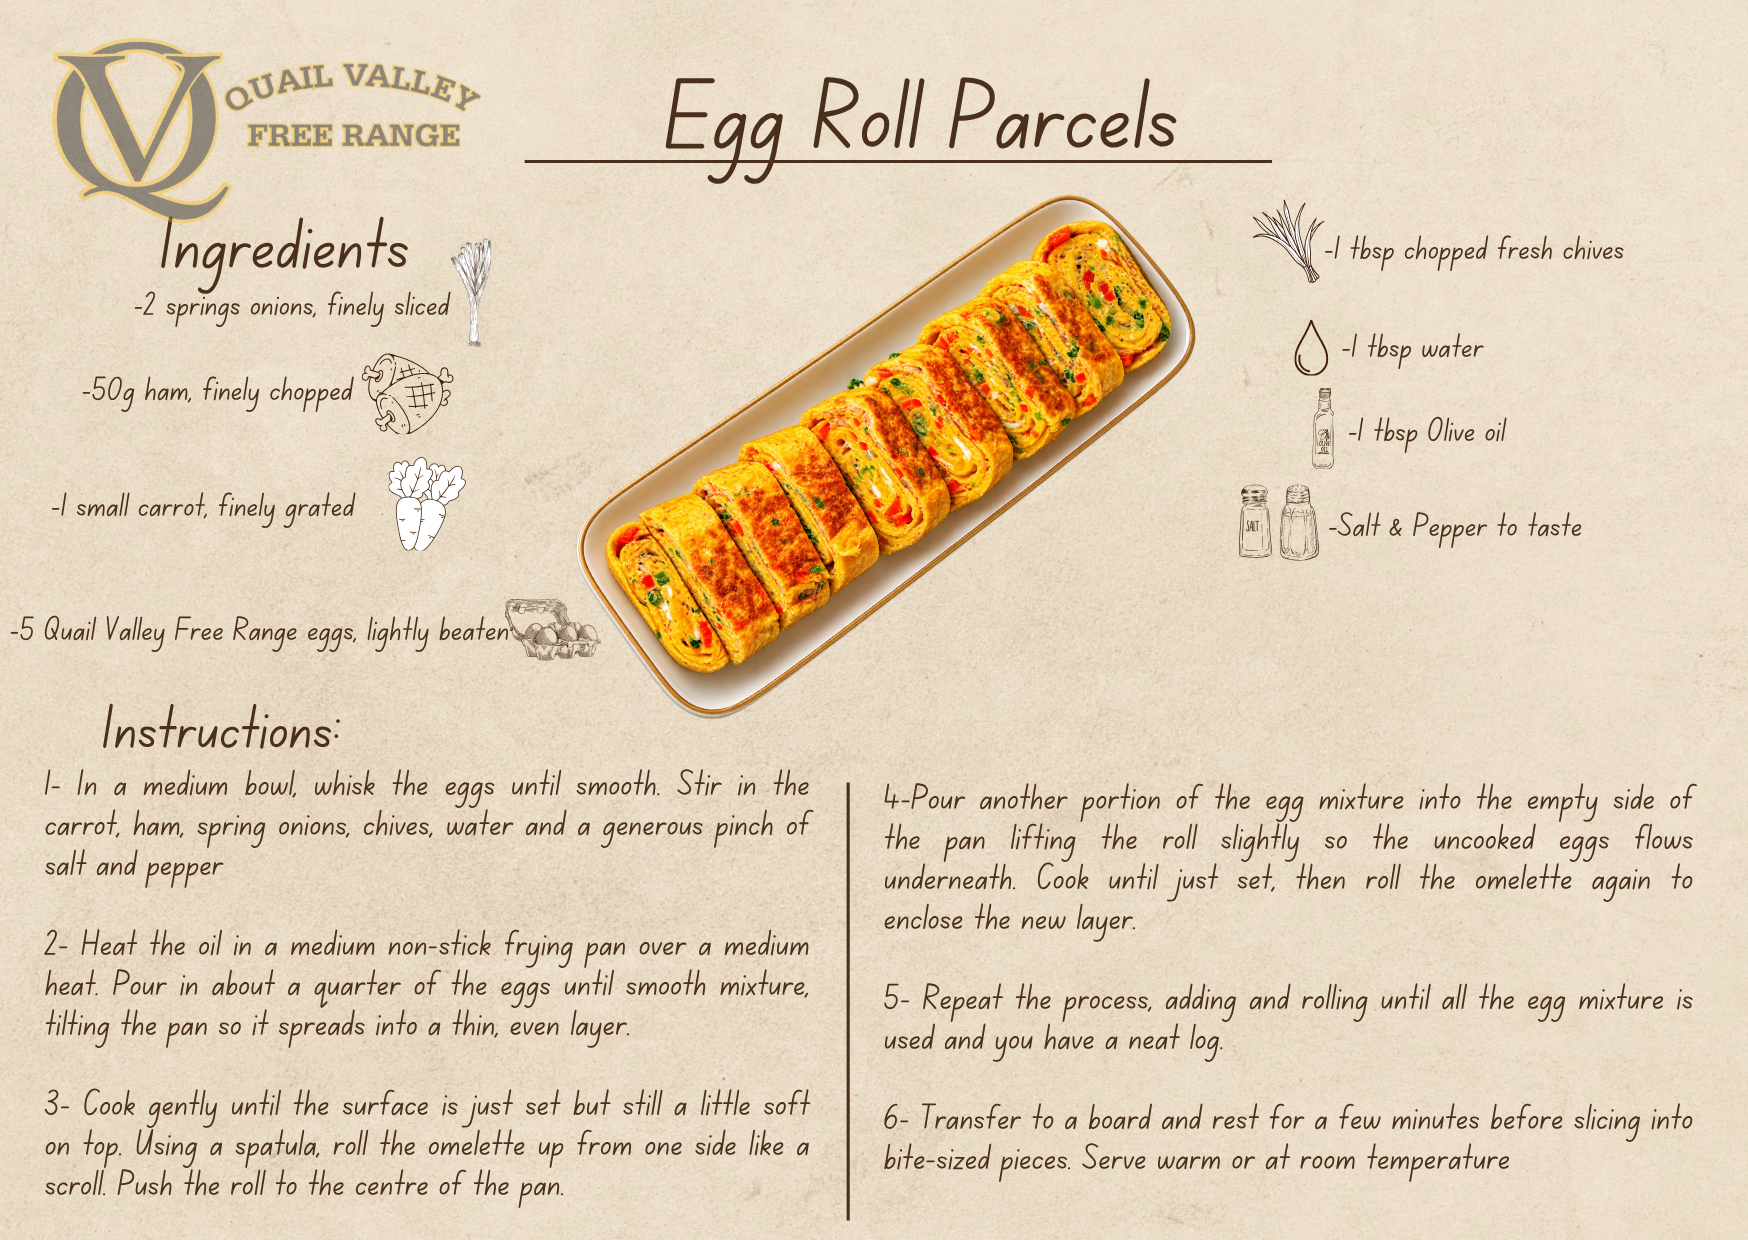 QUAIL VALLEY
FREE RANGE
Egg Roll Parcels
Ingredients
-2 springs onions, finely sliced
-50g ham, finely chopped
-1 small carrot, finely grated
-5 Quail Valley Free Range eggs, lightly beaten
-1 tbsp chopped fresh chives
-1 tbsp water
-1 tbsp Olive oil
OLIVE
OIL
SALT
-Salt & Pepper to taste
Instructions:
1- In a medium bowl, whisk the eggs until smooth. Stir in the
carrot, ham, spring onions, chives, water and a generous pinch of
salt and pepper
2- Heat the oil in a medium non-stick frying pan over a medium
heat. Pour in about a quarter of the eggs until smooth mixture,
tilting the pan so it spreads into a thin, even layer.
3- Cook gently until the surface is just set but still a little soft
on top. Using a spatula, roll the omelette up from one side like a
scroll. Push the roll to the centre of the pan.
4-Pour another portion of the egg mixture into the empty side of
the pan lifting the roll slightly so the uncooked eggs flows
underneath. Cook until just set, then roll the omelette again to
enclose the new layer.
5- Repeat the process, adding and rolling until all the egg mixture is
used and you have a neat log.
6- Transfer to a board and rest for a few minutes before slicing into
bite-sized pieces. Serve warm or at room temperature